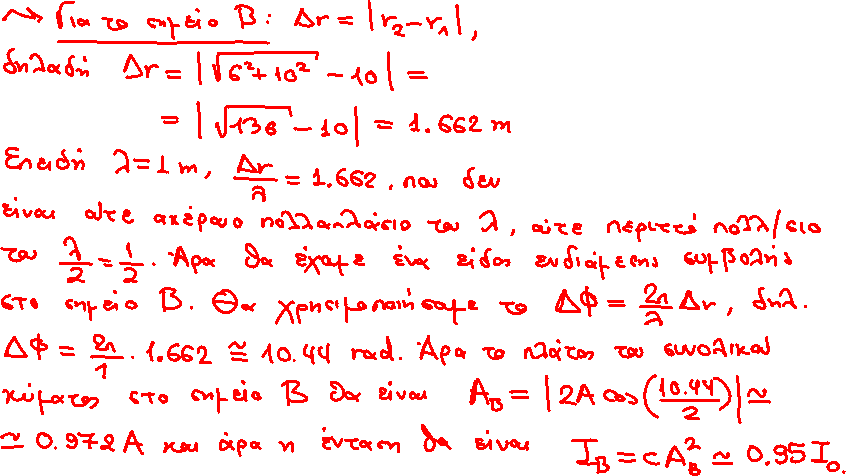 ⤳ Για το σημείο Β: Δr = |r₂-r₁|,
δηλαδή Δr = |√(6²+10²) - 10| =
= |√136 - 10| = 1.662 m
Επειδή λ=1m, Δr/λ = 1.662, που δεν
είναι ούτε ακέραιο πολλαπλάσιο του λ, ούτε περιττό πολλ/σιο
του λ/2 = 1/2. Άρα θα έχουμε ένα είδος ενδιάμεσης συμβολής
στο σημείο Β. Θα χρησιμοποιήσουμε το ΔΦ = 2π/λ Δr, δηλ.
ΔΦ = 2π/1 · 1.662 ≅ 10.44 rad. Άρα το πλάτος του συνολικού
κύματος στο σημείο Β θα είναι A_B = |2A cos(10.44/2)| ≃
≃ 0.972A και άρα η ένταση θα είναι I_B = cA_B² ≃ 0.95 I₀.